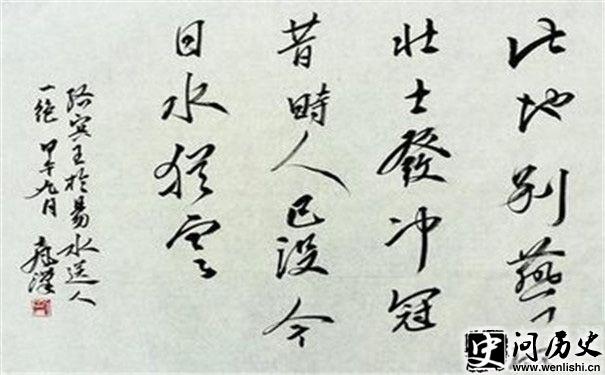 此地别燕
壮士發冲冠
昔時人已没今
日水猶寒
骆宾王於易水送人
一绝 甲午九月
问历史
www.wenlishi.cn